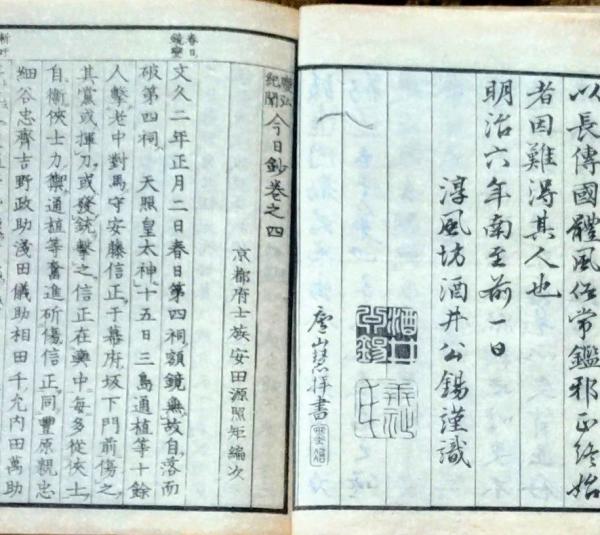 以長傳國體風俗常鑑邪正終始
者因難得其人也
明治六年南至前一日
淳風坊酒井公錫謹識
慶弘紀聞
今日鈔卷之四
京都府士族安田源照矩編次
春日鏡墜
文久二年正月二日春日第四祠額鏡無故自落而
破第四祠天照皇太神十五日三島通植等十餘
人擊老中對馬守安藤信正于幕府坂下門前傷之
其黨或揮刀或發銃擊之信正在輿中每多從俠士
自衞俠士力禦通植等奮進斫傷信正同豐原親忠
細谷忠齊吉野政助淺田儀助相田千允内田萬助